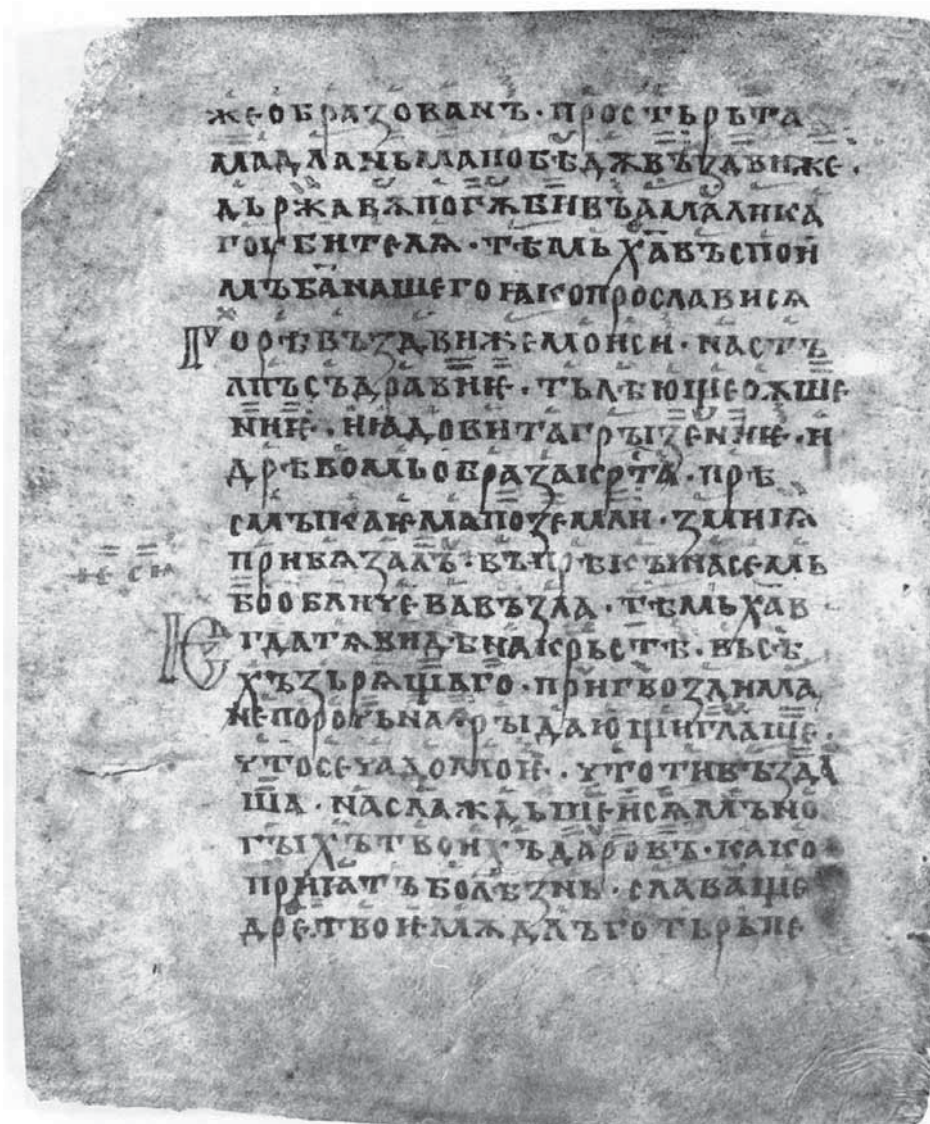 же образованъ · простьръта
ма дланьма побѣдѫ въздвиже ·
дьржавѫ погѫбивъ амалика
гоубителѧ · тѣмь х҃а въспои
мъ б҃а нашего ꙗко прослависѧ
Гѵ орѣ въздвиже мѡиси · на стъ
лпъ съдравиѥ · тьлѣющеѹѫше
ниѥ · и ꙗдовита грызениѥ · и
дрѣвомь образа кр҃та · прѣ
смыкаѥма по земли · змиꙗ
привѧзалъ · въпрѣкы на семь
бо обличе ва възда · тѣмь х҃а в
ѥ си
Ѥгда тѧ видѣ на крьстѣ · вьсѣ
хъ зьрѧщаго · пригвоздила
непорочьнаꙗ рыдающи глаше ·
что се чадо моѥ · что ти възда
ша · наслаждьшеисѧ мъно
гыхъ твоихъ даровъ · како
приꙗтъ болѣзнь · слава ще
дре твоѥмѫ дълготьрьпе